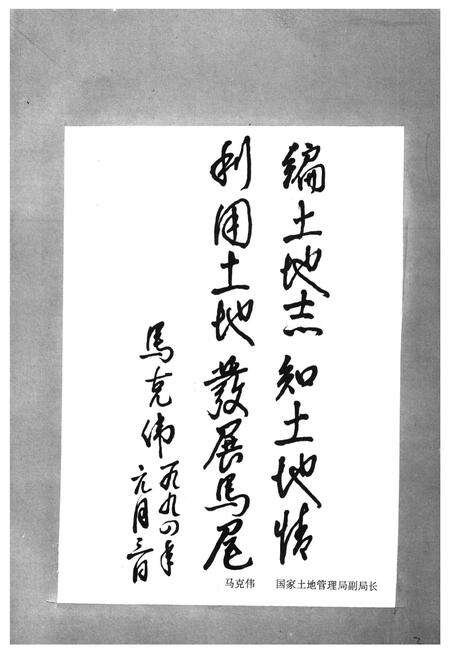 編土地志知土地情
利用土地發展馬尾
馬克伟
一九九四年
元月三日
马克伟 国家土地管理局副局长